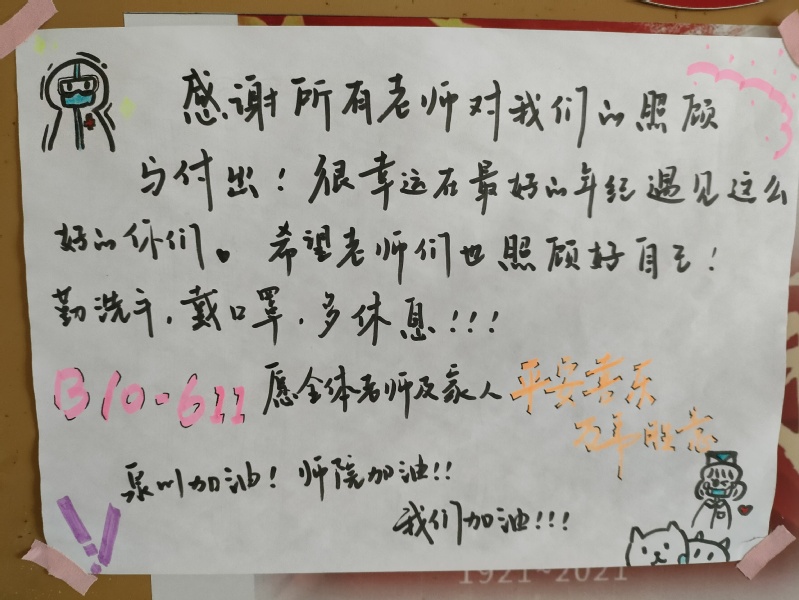 感谢所有老师对我们的照顾
与付出！很幸运在最好的年纪遇见这么
好的你们。希望老师们也照顾好自己！
勤洗手，戴口罩，多休息！！！
B10-611 愿全体老师及家人 平安喜乐
万事胜意
泉州加油！师院加油！！
我们加油！！！
1921~2021